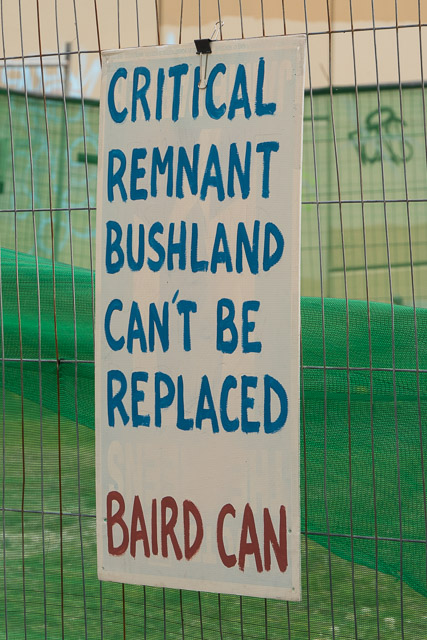 CRITICAL
REMNANT
BUSHLAND
CAN'T BE
REPLACED
BAIRD CAN